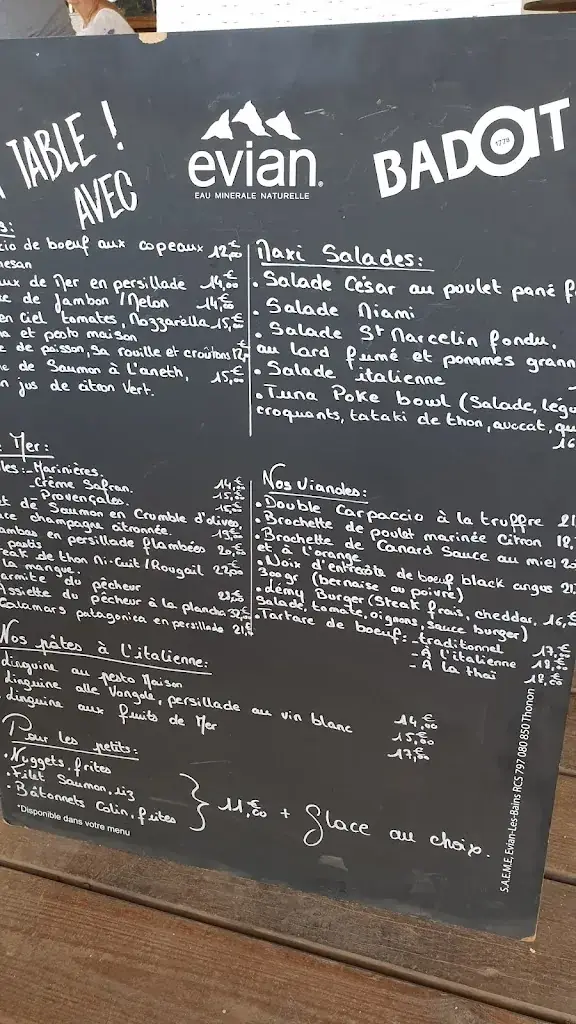 TABLE !
AVEC
evian.
EAU MINERALE NATURELLE
BADOIT
1778
de boeuf aux copeaux 12,00€
mesan
de Mer en persillade 14,00€
de Jambon / Melon 14,00€
en Ciel tomates, Mozzarella 15,00€
et pesto maison
de poisson, sa rouille et croûtons
de Saumon à l'aneth, 15,00€
jus de citron vert.
Maxi Salades:
• Salade César au poulet pané
• Salade Miami
• Salade St Marcelin fondu,
au lard fumé et pommes
• Salade italienne
• Tuna Poke bowl (Salade,
croquants, tataki de thon, avocat,
16
Mer:
Marinières. 14,00€
- Crème Safran. 15,00€
- Provençales. 15,00€
de Saumon en Crumble d'olives
champagne citronnée. 19,00€
en persillade flambées
pastis 20,00€
de thon Mi-Cuit / Rougail
la mangue. 22,00€
du pêcheur
Assiette du pêcheur à la plancha 32,00€
Calamars patagonica en persillade 21,
Nos Viandes:
• Double Carpaccio à la truffe 21
• Brochette de poulet marinée Citron 18,
• Brochette de Canard Sauce au miel 20
et à l'orange
• Noix d'entrecôte de boeuf black angus 21,
300gr (bernaise ou poivre)
• Rémy Burger (Steak frais, cheddar, 16,
Salade, tomate, oignons, Sauce burger)
• Tartare de boeuf: - traditionnel 17,00€
- À l'italienne 18,00€
- À la thaï 18,00€
Nos pâtes à l'italienne:
linguine au pesto Maison 14,00€
linguine alle Vongole, persillade au vin blanc 15,00€
linguine aux fruits de Mer 17,00€
Pour les petits:
• Nuggets, frites
• Filet Saumon, riz
• Bâtonnets Colin, frites
} 11,00€ + glace au choix.
*Disponible dans votre menu
S.A.E.M.E, Evian-Les-Bains RCS 797 080 850 Thonon